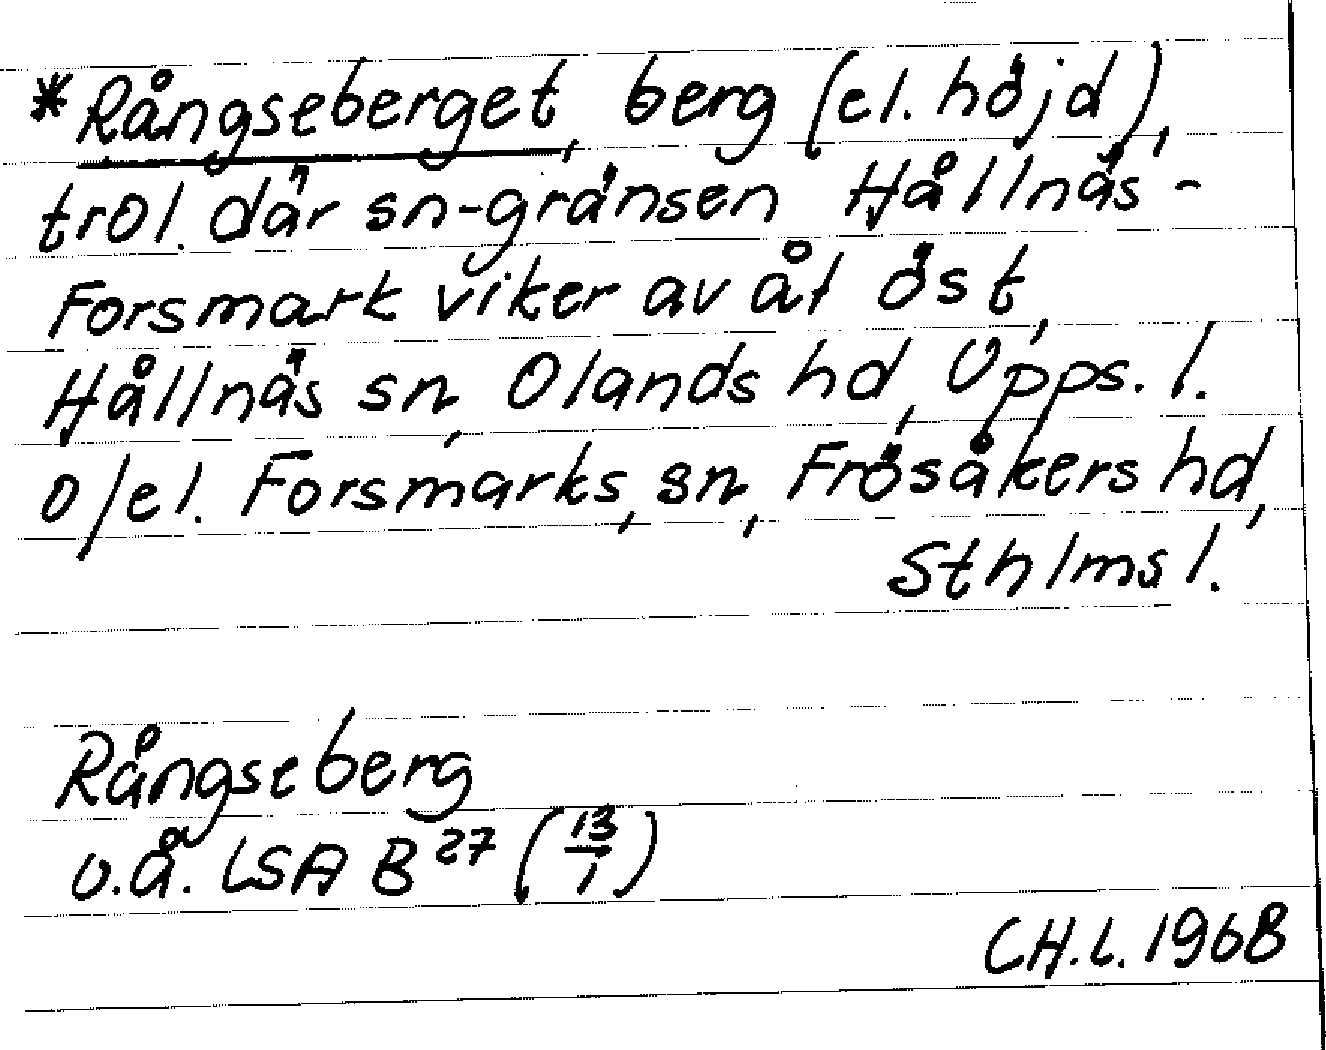 *Rångseberget, berg (el. höjd),
trol. där sn-gränsen Hållnäs -
Forsmark viker av åt öst,
Hållnäs sn, Olands hd, Upps. l.
o/el. Forsmarks, sn, Frösåkers hd,
Sthlms l.
Rångseberg
u.å. LSA B 27 (13/1)
CH.L. 1968